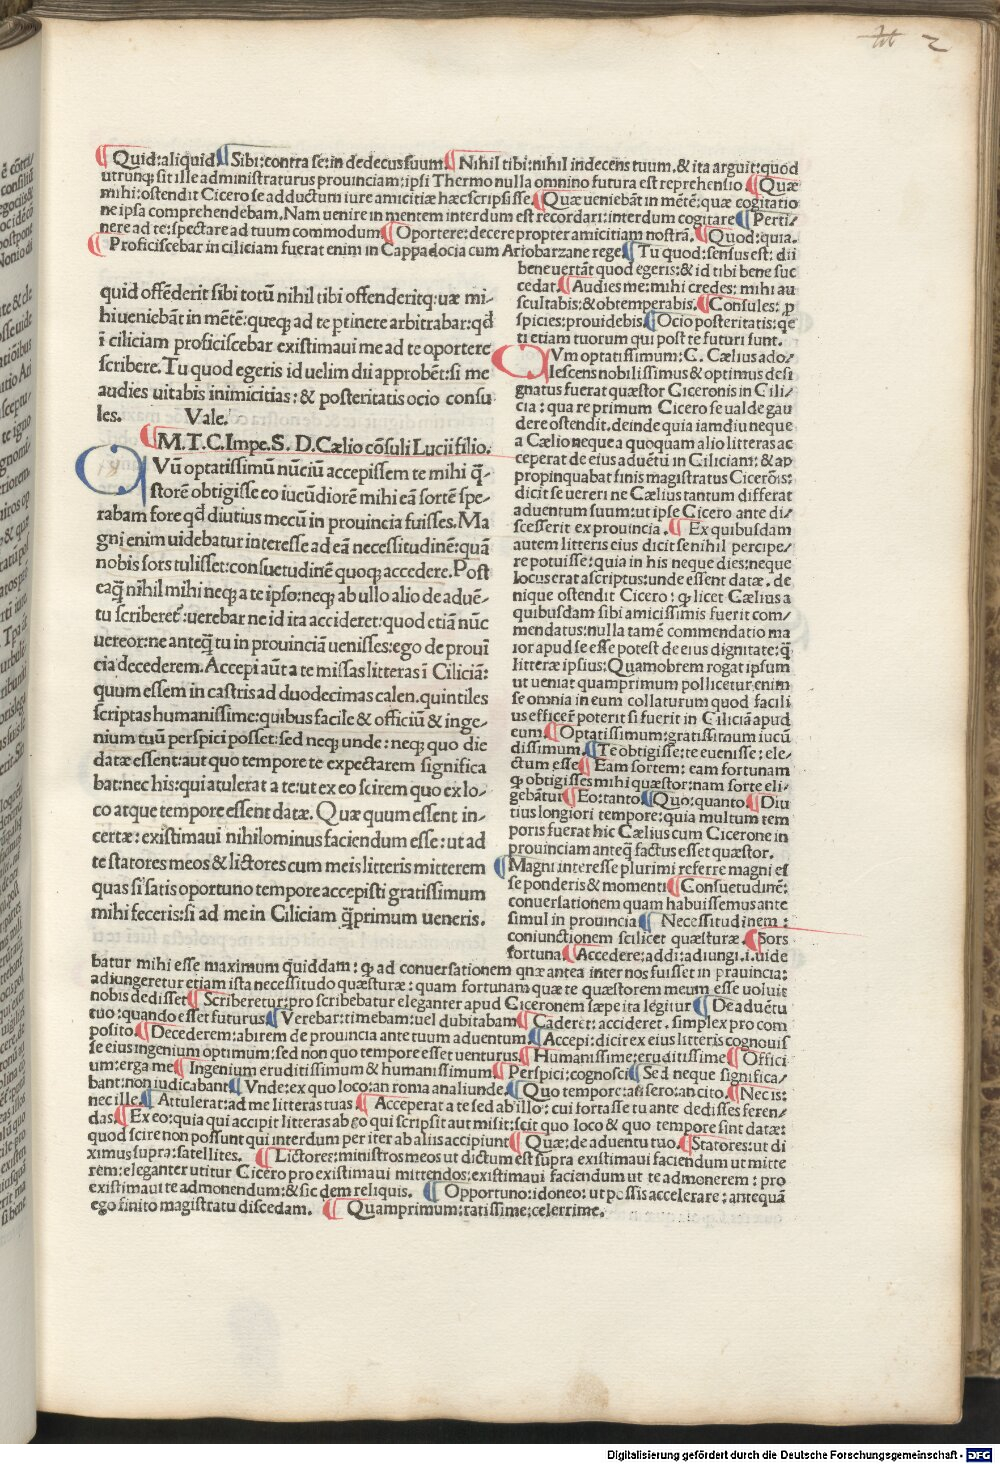 ¶ Quid: aliquid ¶ Sibi: contra se: in dedecus suum ¶ Nihil tibi: nihil indecens tuum, & ita arguit: quod
utrunq; sit ille administraturus prouinciam: ipsi Thermo nulla omnino futura est reprehensio ¶ Quæ
mihi: ostendit Cicero se adductum iure amicitiæ hæc scripsisse. ¶ Quæ ueniebāt in mētē: quæ cogitatio
ne ipsa comprehendebam. Nam uenire in mentem interdum est recordari: interdum cogitare ¶ Perti/
nere ad te: spectare ad tuum commodum ¶ Oportere: decere propter amicitiam nostrā. ¶ Quod: quia.
¶ Proficiscebar in ciliciam fuerat enim in Cappadocia cum Ariobarzane rege ¶ Tu quod: sensus est: dii
quid offēderit sibi totū nihil tibi offenderitq: uæ mi/
hi ueniebāt in mētē: queq; ad te ptinere arbitrabar: qd
ī ciliciam proficiscebar existimaui me ad te oportere
scribere. Tu quod egeris id uelim dii approbēt: si me
audies uitabis inimicitias: & posteritatis ocio consu
les. Vale.
¶ M. T. C. Impe. S. D. Cælio cōsuli Lucii filio.
QVū optatissimū nūciū accepissem te mihi q̄
storē obtigisse eo iucūdiorē mihi eā sortē spe/
rabam fore qd diutius mecū in prouincia fuisses. Ma
gni enim uidebatur interesse ad eā necessitudinē: quā
nobis sors tulisset: consuetudinē quoq; accedere. Post
eaq̄ nihil mihi neq; a te ipso: neq; ab ullo alio de aduē/
tu scriberet: uerebar ne id ita accideret: quod etiā nūc
uereor: ne anteq̄ tu in prouinciā uenisses: ego de prouī
cia decederem. Accepi aūt a te missas litteras ī Ciliciā:
quum essem in castris ad duodecimas calen. quintiles
scriptas humanissime: quibus facile & officiū & inge/
nium tuū perspici posset: sed neq; unde: neq; quo die
datæ essent: aut quo tempore te expectarem significa
bat: nec his: qui atulerat a te: ut ex eo scirem quo ex lo/
co atque tempore essent datæ. Quæ quum essent in/
certæ: existimaui nihilominus faciendum esse: ut ad
te statores meos & lictores cum meis litteris mitterem
quas si satis oportuno tempore accepisti gratissimum
mihi feceris: si ad me in Ciliciam q̄primum ueneris.
bene uertāt quod egeris: & id tibi bene suc
cedat. ¶ Audies me: mihi credes: mihi au
scultabis: & obtemperabis. ¶ Consules: p
spicies: prouidebis. ¶ Ocio posteritatis: qe
ti etiam tuorum qui post te futuri sunt.
CVm optatissimum: C. Cælius ado/
lescens nobilissimus & optimus desi
gnatus fuerat quæstor Ciceronis in Cili/
cia: qua re primum Cicero se ualde gau
dere ostendit. deinde quia iamdiu neque
a Cælio neque a quoquam alio litteras ac
ceperat de eius aduētu in Ciliciam: & ap
propinquabat finis magistratus Cicerōis:
dicit se uereri ne Cælius tantum differat
aduentum suum: ut ipse Cicero ante di/
scesserit ex prouincia. ¶ Ex quibusdam
autem litteris eius dicit se nihil percipe/
re potuisse: quia in his neque dies: neque
locus erat ascriptus: unde essent datæ. de
nique ostendit Cicero: q licet Cælius a
quibusdam sibi amicissimis fuerit com/
mendatus: nulla tamē commendatio ma
ior apud se esse potest de eius dignitate: q̄
litteræ ipsius: Quamobrem rogat ipsum
ut ueniat quamprimum pollicetur enim
se omnia in eum collaturum quod facili
us efficer̄ poterit si fuerit in Ciliciā apud
eum. ¶ Optatissimum: gratissimum iucū
dissimum. ¶ Te obtigisse: te euenisse: ele/
ctum esse ¶ Eam sortem: eam fortunam
q obtigisses mihi quæstor: nam sorte eli/
gebātur ¶ Eo: tanto ¶ Quo: quanto ¶ Diu
tius longiori tempore: quia multum tem
poris fuerat hic Cælius cum Cicerone in
prouinciam anteq̄ factus esset quæstor.
¶ Magni interesse plurimi referre magni es
se ponderis & momenti ¶ Consuetudinē:
conuersationem quam habuissemus ante
simul in prouincia ¶ Necessitudinem:
coniunctionem scilicet quæsturæ. ¶ Sors
fortuna. ¶ Accedere: addi: adiungi. i. uide
batur mihi esse maximum quiddam: q ad conuersationem quæ antea inter nos fuisset in prauincia:
adiungeretur etiam ista necessitudo quæsturæ: quam fortunam quæ te quæstorem meum esse uoluit
nobis dedisset ¶ Scriberetur: pro scribebatur eleganter apud Ciceronem sæpe ita legitur ¶ De aduētu
tuo: quando esset futurus ¶ Verebar: timebam: uel dubitabam ¶ Caderet: accideret. simplex pro com
posito. ¶ Decederem: abirem de prouincia ante tuum aduentum. ¶ Accepi: dicit ex eius litteris cognouis
se eius ingenium optimum: sed non quo tempore esset uenturus. ¶ Humanissime: eruditissime ¶ Offici
um: erga me ¶ Ingenium eruditissimum & humanissimum. ¶ Perspici: cognosci ¶ Sed neque significa/
bant: non iudicabant ¶ Vnde: ex quo loco: an roma an aliunde. ¶ Quo tempore: an sero: an cito. ¶ Nec is:
nec ille. ¶ Attulerat: ad me litteras tuas ¶ Acceperat a te sed ab illo: cui fortasse tu ante dedisses feren/
das. ¶ Ex eo: quia qui accipit litteras ab eo qui scripsit aut misit: scit quo loco & quo tempore sint datæ:
quod scire non possunt qui interdum per iter ab aliis accipiunt ¶ Quæ: de aduentu tuo. ¶ Statores: ut di
ximus supra: satellites. ¶ Lictores: ministros meos ut dictum est supra existimaui faciendum ut mitte
rem: eleganter utitur Cicero pro existimaui mittendos: existimaui faciendum ut te admonerem: pro
existimaui te admonendum: & sic dem reliquis. ¶ Opportuno: idoneo: ut possis accelerare: antequā
ego finito magistratu discedam. ¶ Quamprimum: ratissime: celerrime.
Digitalisierung gefördert durch die Deutsche Forschungsgemeinschaft - DFG